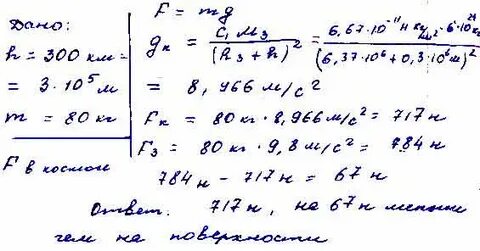 Дано:
h = 300 км =
= 3·10⁵ м
m = 80 кг
F в космосе
F = mg
gк = G M₃ / (R₃ + h)² = 6,67·10⁻¹¹ Н м²/кг² · 6·10²⁴ кг / (6,37·10⁶ + 0,3·10⁶ м)²
= 8,966 м/с²
Fк = 80 кг · 8,966 м/с² = 717 н
F₃ = 80 кг · 9,8 м/с² = 784 н
784 н − 717 н = 67 н
Ответ. 717 н, на 67 н меньше
чем на поверхности